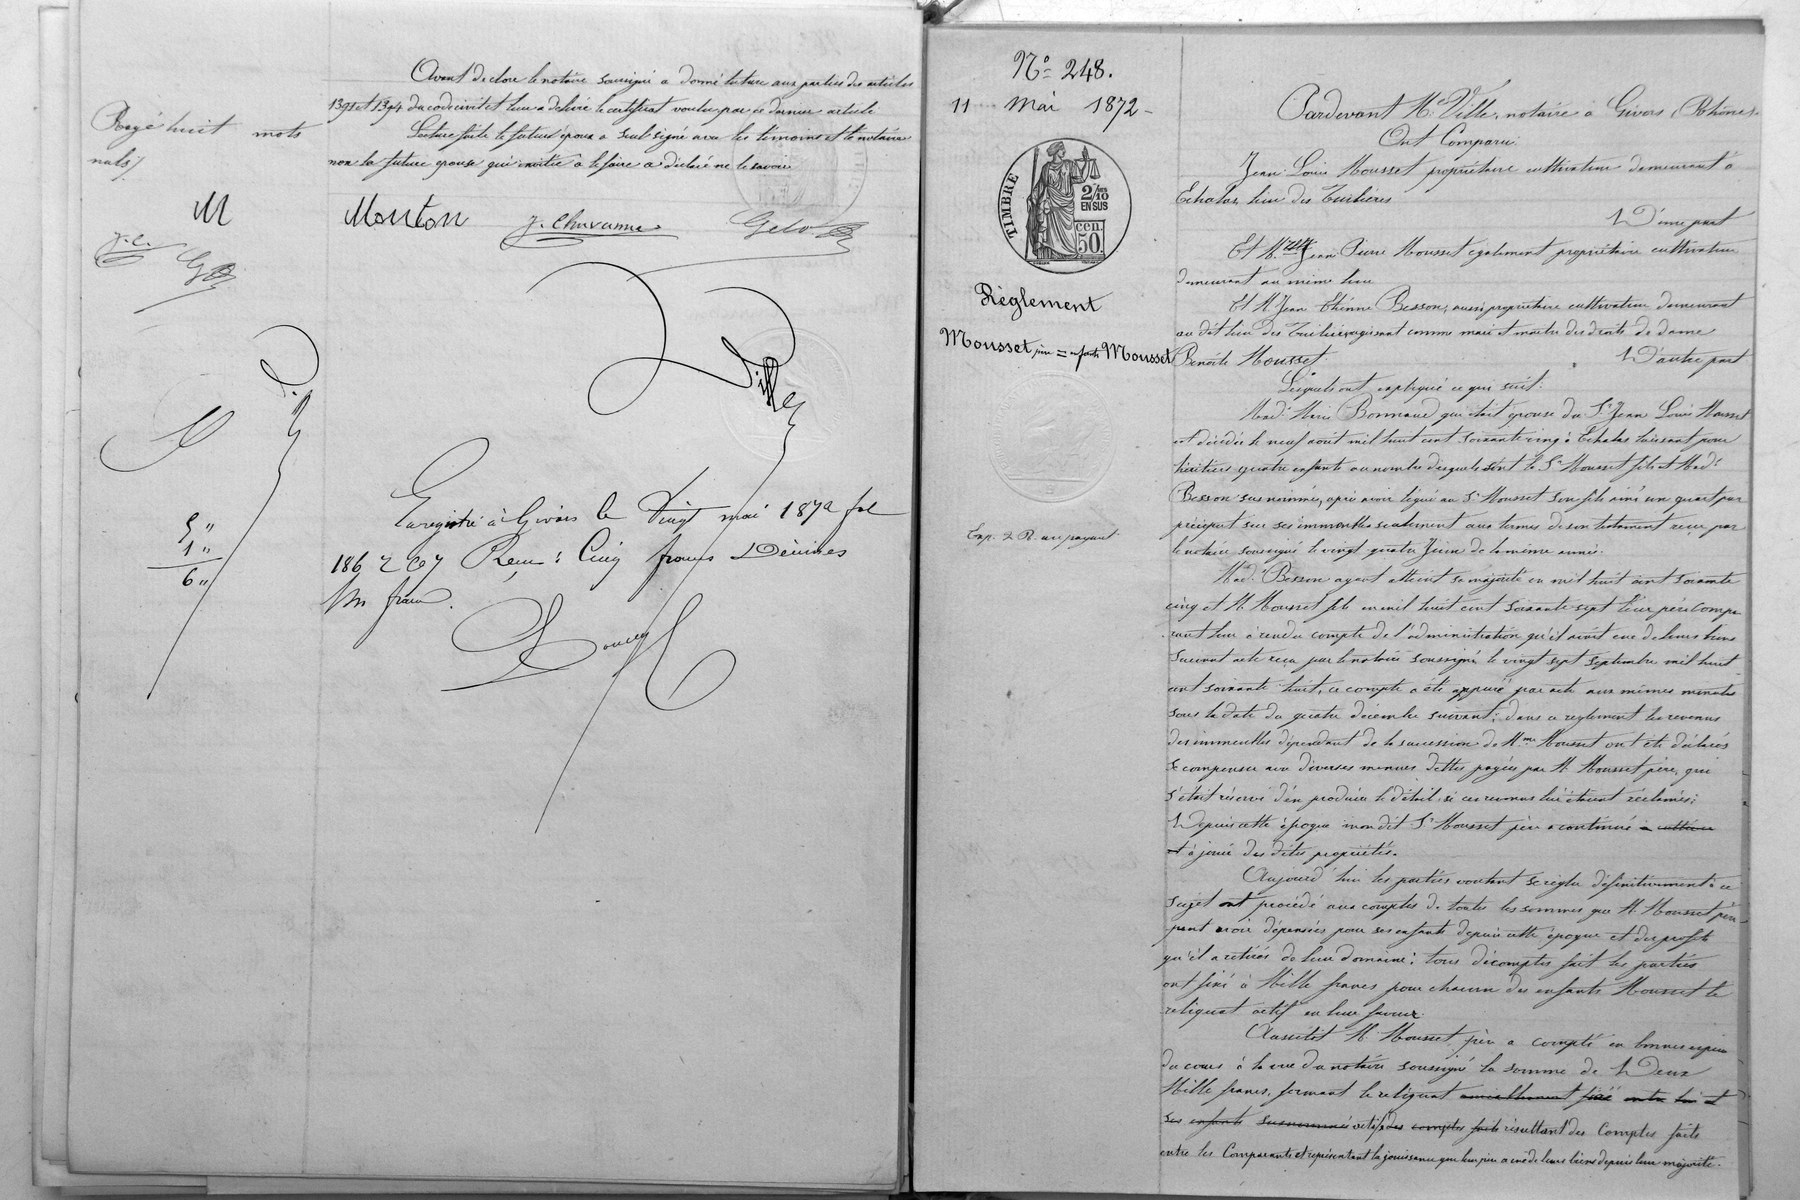 Avant de clore le notaire soussigné a donné lecture aux parties des articles
1391 et 1394 du code civil et leur a délivré le certificat voulu par ce dernier article
Lecture faite le futur époux a seul signé avec les témoins et le notaire
non la future epouse qui invitée à le faire a déclaré ne le savoir
Rayé huit mots
nuls
M
Mouton J. Chavanne
J. C.
Ville
5 "
1 "
6 "
Enregistré à Givors le Vingt mai 1872 fol
186 Reçu : Cinq francs Décimes
Un franc.
N° 248.
11 Mai 1872
TIMBRE
2/10
EN SUS
50 CEN.
Règlement
Mousset père = enfants Mousset
Exp. 2 R. en payant
Pardevant Me Ville, notaire à Givors (Rhône)
Ont Comparu
Jean Louis Mousset propriétaire cultivateur demeurant à
Echalas, lieu des Tuilières
D'une part
Et M. Jean Pierre Mousset également propriétaire cultivateur
demeurant au même lieu
Et M. Jean Etienne Besson, aussi propriétaire cultivateur demeurant
au dit lieu des Tuilières agissant comme mari et maitre des droits de dame
Benoite Mousset
D'autre part
Lesquels ont expliqué ce qui suit.
Mad. Marie Bonnaud qui était épouse du Sr Jean Louis Mousset
est décédée le neuf août mil huit cent soixante cinq à Echalas laissant pour
héritiers quatre enfants au nombre desquels sont le Sr Mousset fils et Made
Besson sus nommés, après avoir légué au Sr Mousset son fils ainé un quart par
préciput sur ses immeubles seulement aux termes de son testament reçu par
le notaire soussigné le vingt quatre Juin de la même année.
Made Besson ayant atteint sa majorité en mil huit cent soixante
cinq et M. Mousset fils en mil huit cent soixante sept leur père compa
rant leur a rendu compte de l'administration qu'il avait eue de leurs biens
suivant acte reçu par le notaire soussigné le vingt sept septembre mil huit
cent soixante huit, ce compte a été appuré par acte aux mêmes minutes
sous la date du quatre décembre suivant; dans ce règlement les revenus
des immeubles dépendant de la succession de Mme Mousset ont été déclarés
se compenser avec diverses menues dettes payées par M. Mousset père, qui
s'était réservé d'en produire le détail si ces revenus lui étaient réclamés;
Depuis cette époque mon dit Sr Mousset père a continué a cultiver
et à jouir des dites propriétés.
Aujourd'hui les parties voulant se règler définitivement à ce
sujet ont procédé aux comptes de toutes les sommes que M. Mousset père
peut avoir dépensées pour ses enfants depuis cette époque et des profits
qu'il a retirés de leur domaine; tous décomptes fait les parties
ont fixé à Mille francs pour chacun des enfants Mousset le
reliquat actif en leur faveur.
Aussitôt M. Mousset père a compté en bonnes espèces
du cours à la vue du notaire soussigné la somme de Deux
Mille francs, formant le reliquat amiablement fixé entre lui et
ses enfants susnommés actif des comptes faits résultant des Comptes faits
entre les Comparants et représentant la jouissance que leur père a eue de leurs biens depuis leur majorité.